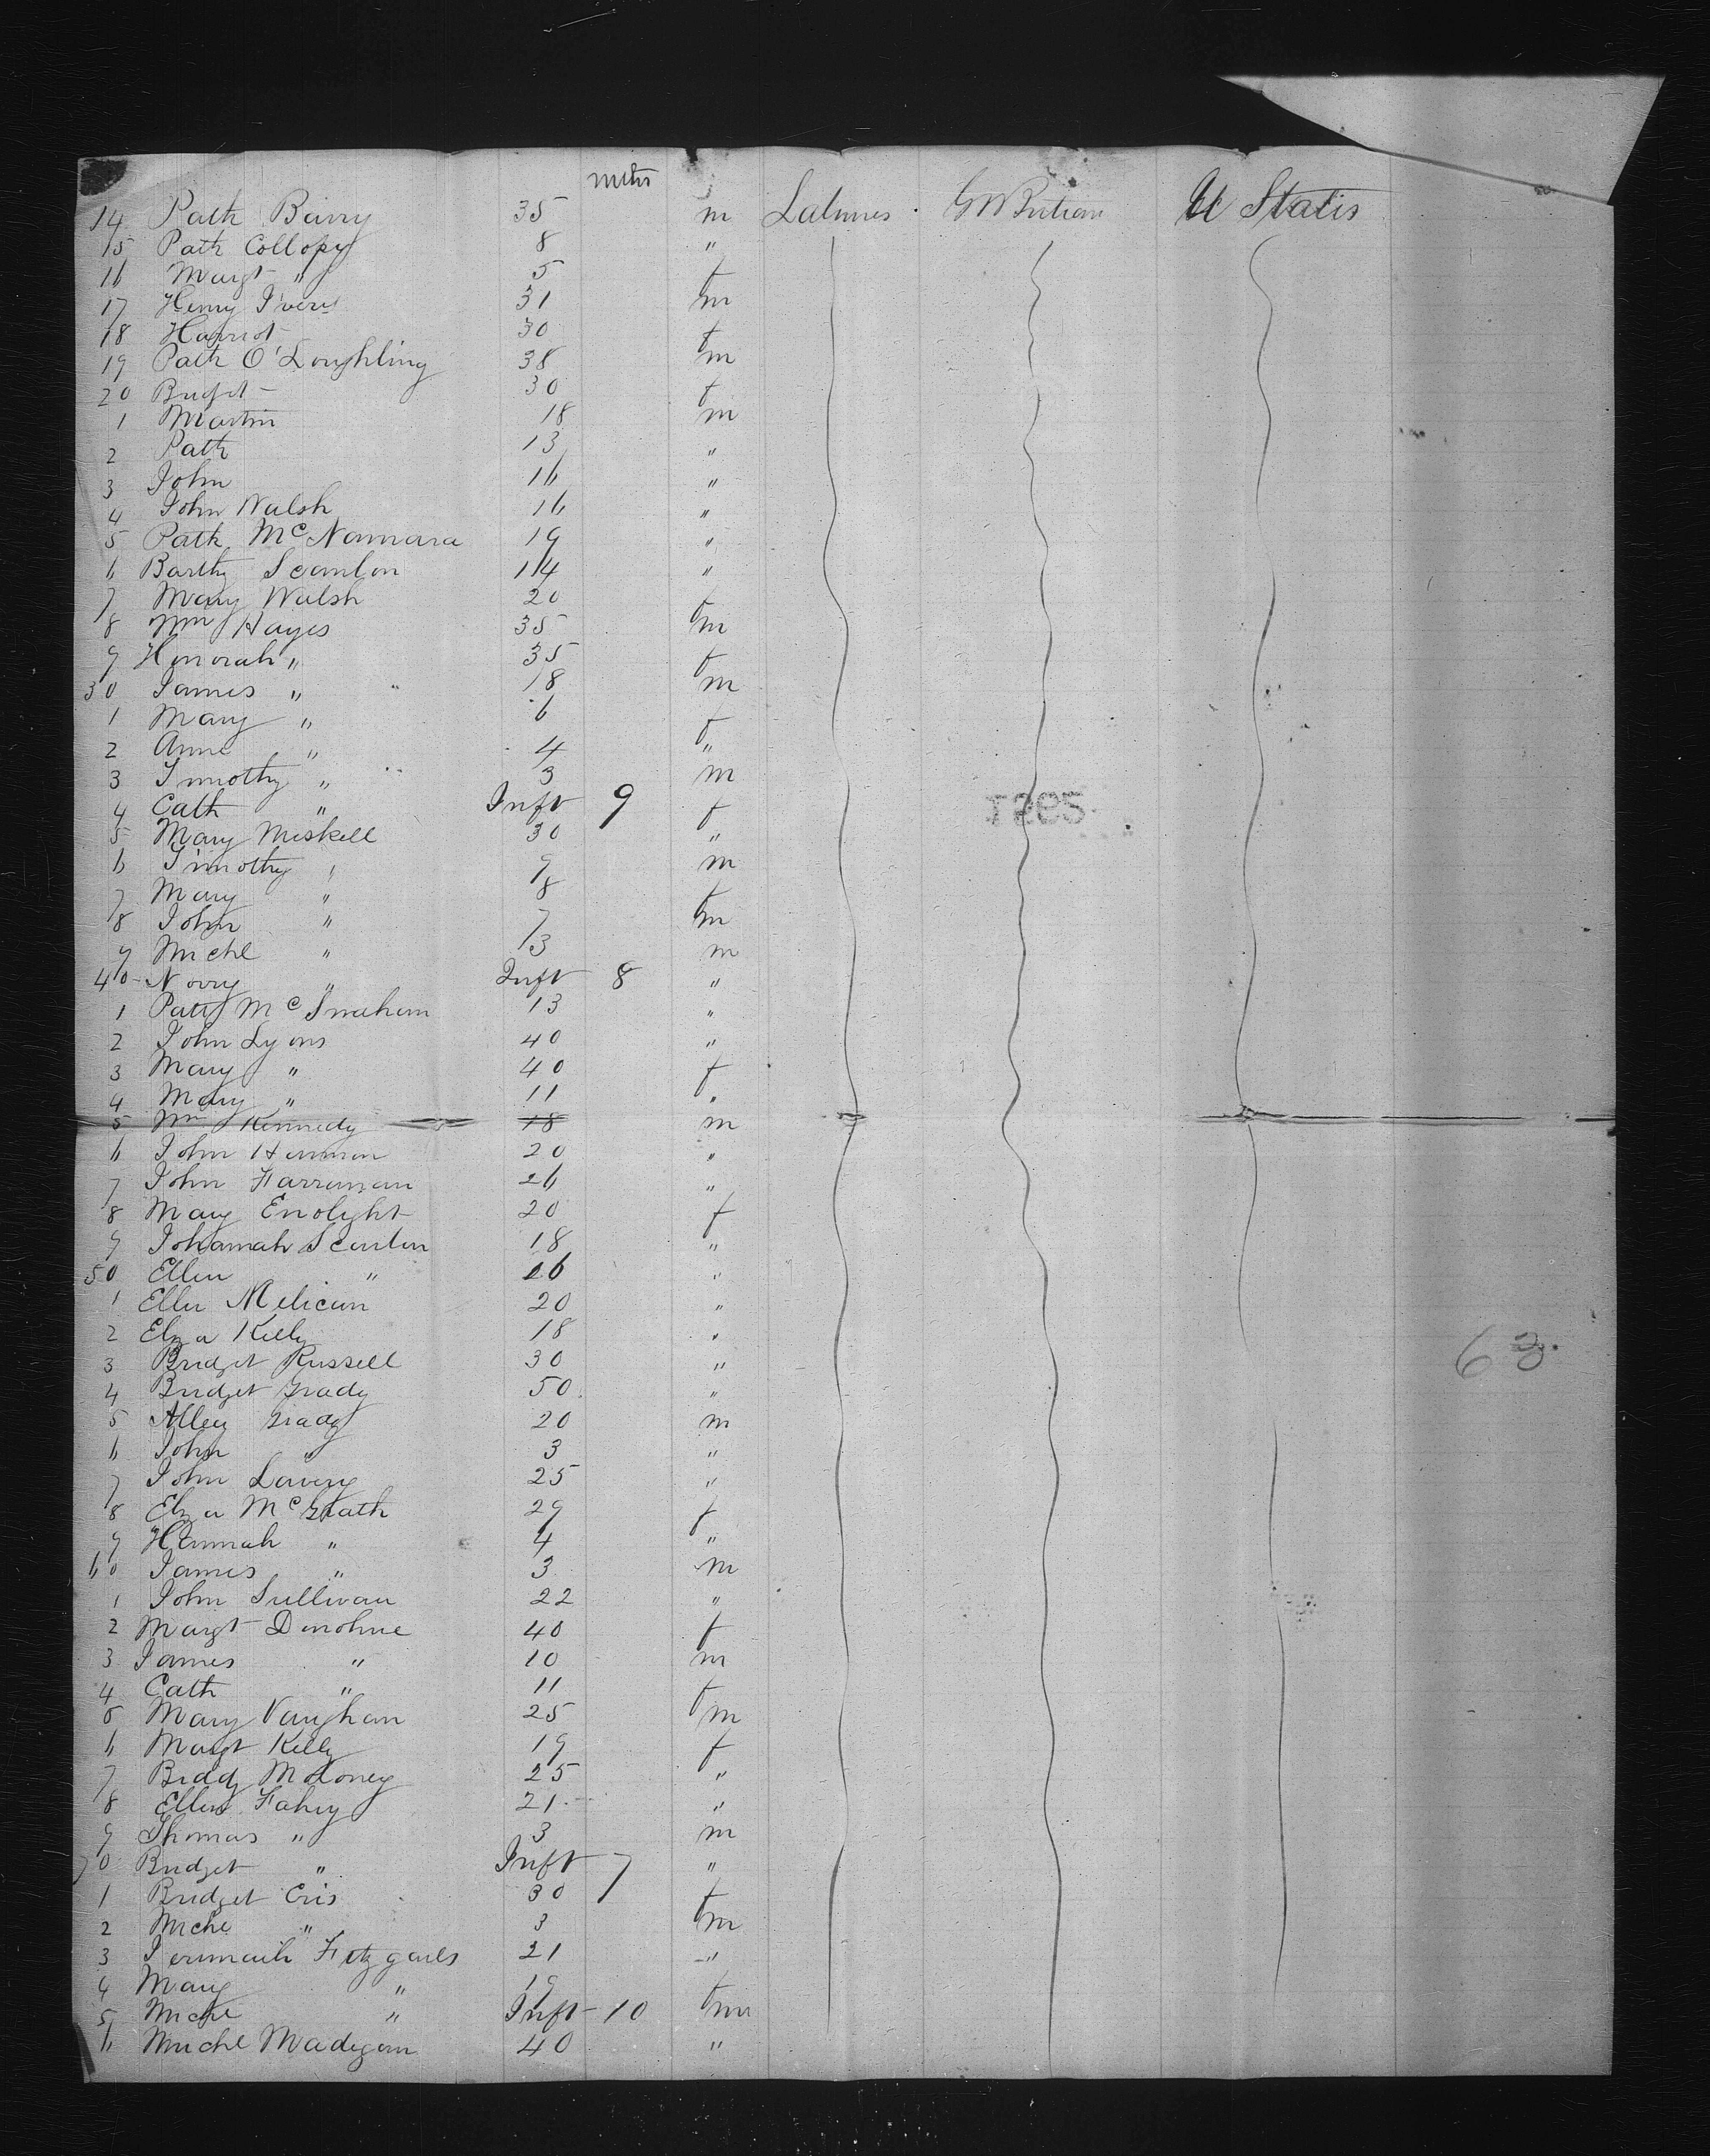 mths
14 Patk Barry 35 m Labrers G Britian U Statis
15 Patk Collopy 8 "
16 Margt " 5 f
17 Henry Ivers 31 m
18 Harriot 30 f
19 Patk O'Loughling 38 m
20 Bridgt 30 f
1 Martin 18 m
2 Patk 13 "
3 John 16 "
4 John Walsh 16 "
5 Patk McNamara 19 "
6 Barthy Scanlon 14 "
7 Mary Walsh 20 f
8 Wm Hayes 35 m
9 Honorah " 35 f
30 James " 18 m
1 Mary " 6 f
2 Anne " 4 "
3 Timothy " 3 m
4 Cath " Inft 9 f
5 Mary Meskell 30 "
6 Timothy " 9 m
7 Mary " 8 f
8 John " 7 m
9 Michl " 3 m
40 Norry " Inft 8 "
1 Patk Mc 13 "
2 John Lyons 40 "
3 Mary " 40 f
4 Mary " 11 "
5 Wm Kennedy 18 m
6 John 20 "
7 John 26 "
8 Mary Enolight 20 f
9 Johannah Scanlon 18 "
50 Ellen " 26 "
1 Ellen Melican 20 "
2 Eliza Kelly 18 "
3 Bridget Russell 30 "
4 Bridget Grady 50 "
5 Alley Grady 20 m
6 John " 3 "
7 John Lavery 25 "
8 Eliza McGrath 29 f
9 Hannah " 4 "
60 James " 3 m
1 John Sullivan 22 "
2 Margt Donohue 40 f
3 James " 10 m
4 Cath " 11 f
5 Mary Vaughan 25 m
6 Margt Kelly 19 f
7 Biddy Moloney 25 "
8 Ellen Fahey 21 "
9 Thomas " 3 m
70 Bridget " Inft 7 "
1 Bridget Cris 30 f
2 Michl " 3 m
3 Jermaih Fitzgarls 21 "
4 Mary " 19 f
5 Michl " Inft 10 m
6 Michl Madigan 40 "
63.